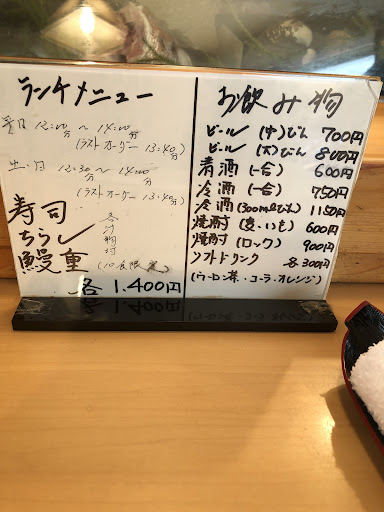 ランチメニュー
平日 12:00分〜14:00分
(ラストオーダー 13:40分)
土・日 12:30分〜14:00分
(ラストオーダー 13:40分)
寿司
ちらし
鰻重
各汁物付
(10食限定)
各 1.400円
お飲み物
ビール (中)びん 700円
ビール (大)びん 800円
清酒 (一合) 600円
冷酒 (一合) 750円
冷酒 (300mlびん) 1150円
焼酎 (麦、いも) 600円
焼酎 (ロック) 900円
ソフトドリンク 各300円
(ウーロン茶・コーラ・オレンジ)